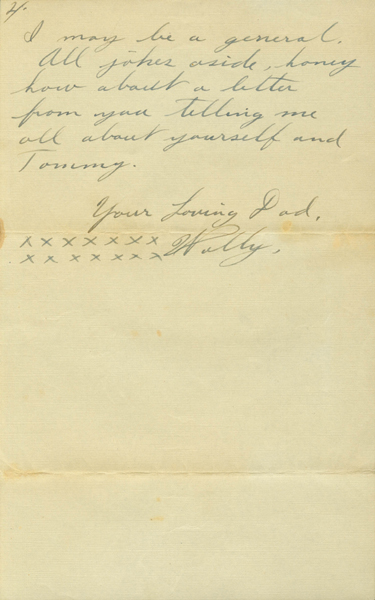 4.
I may be a general.
All jokes aside, honey
how about a letter
from you telling me
all about yourself and
Tommy.
Your Loving Dad,
x x x x x x x
x x x x x x x Wally.